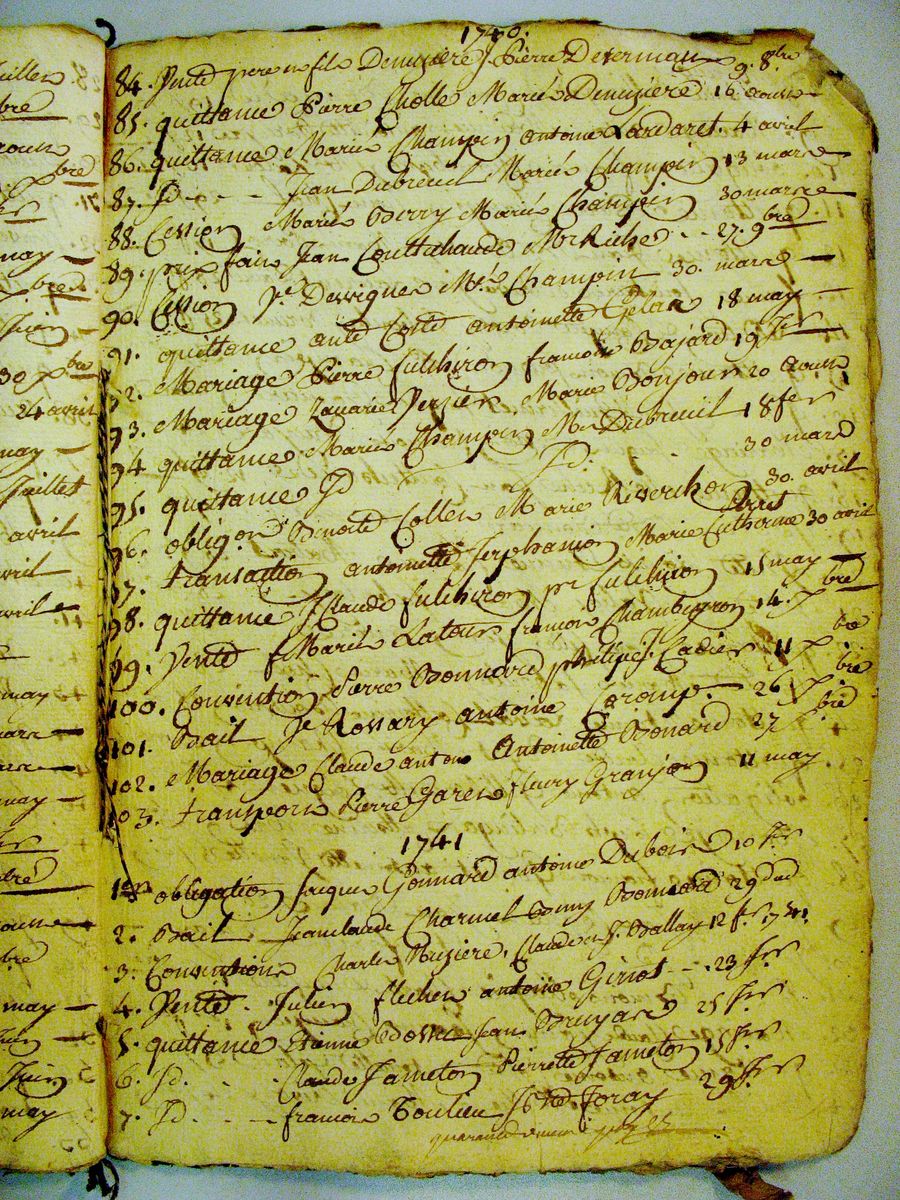 uillet
bre
aoust
xbre
may
xbre
Juin
30 xbre
24 avril
may
Juillet
avril
avril
avril
may
marse
may
bre
aoust
bre
may
Juin
Juin
may
1740.
84. Vente pere et fils Demuziere J. Pierre Deverman 9. 8bre
85. quittance Pierre Cholle Marie Demuziere 16 aoust
86. quittance Marie Champin antoine Lardaret. 4 avril
87. Jd Jean Dubreuil Marie Champin 13 marse
88. Cession Marie Berry Marie Champin 30 marse
89. prix fait Jean Couttchaude Mr Riche 27. 9bre
90. Cession Pre Desvignes Mie Champin 30. marse
91. quittance ante Coste antoinette Gelas 18 may
92. Mariage Pierre fulchiron francoise Bajard 19 Jer
93. Mariage Zacarie Verzier Marie Bonjour 20 aoust
94 quittance Marie Champin Mr Dubreuil 18 fer
95. quittance Jd Jd. 30 mard
96. obligon Benoite Collet Marie Riverchon 30. avril
97. transaction antoinette Jerphanion Marie Catherine Perret 30 avril
98. quittance J Claude fulchiron pre fulchiron 15 may
99. Vente Marie Latour francois Chambeyron 14. xbre
100. Convention Pierre Bonnard philipe J. Cadier 11 xbre
101. Bail Je Rossary antoine Coromp. 26 xbre
102. Mariage Claude anton Antoinette Bonard 27 xbre
103. transport Pierre Garet fleury Granjon 11 may
1741
1er obligation Jacques Gonnard antoine Dubois 10 Jer
2. Bail Jean Claude Charmet Bonnard 29
3. Convention Charles Muziere, Claude J. Ballay 12 fer 1741
4. Vente Julien flechet antoine Girost 23 fer
5. quittance Etienne Bosne Jean Bruyas 25 Jer
6. Jd. Claude Jameton Pierrette Jameton 15 Jer
7. Jd francois Toulieu Jbte Foray 29 Jer